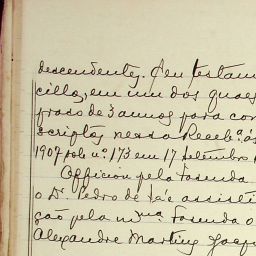 descendentes. O seu testam
cillo, em um dos quaes
praso de 3 annos para con
scriptos nessa Receb.ª ás
1907 sob n.º 173 em 17 Setembro
Officiou pela Fasenda
o Dr. Pedro de Sá e assisti
ção pela m.ma Fasenda o
Alexandre Martins Joaq